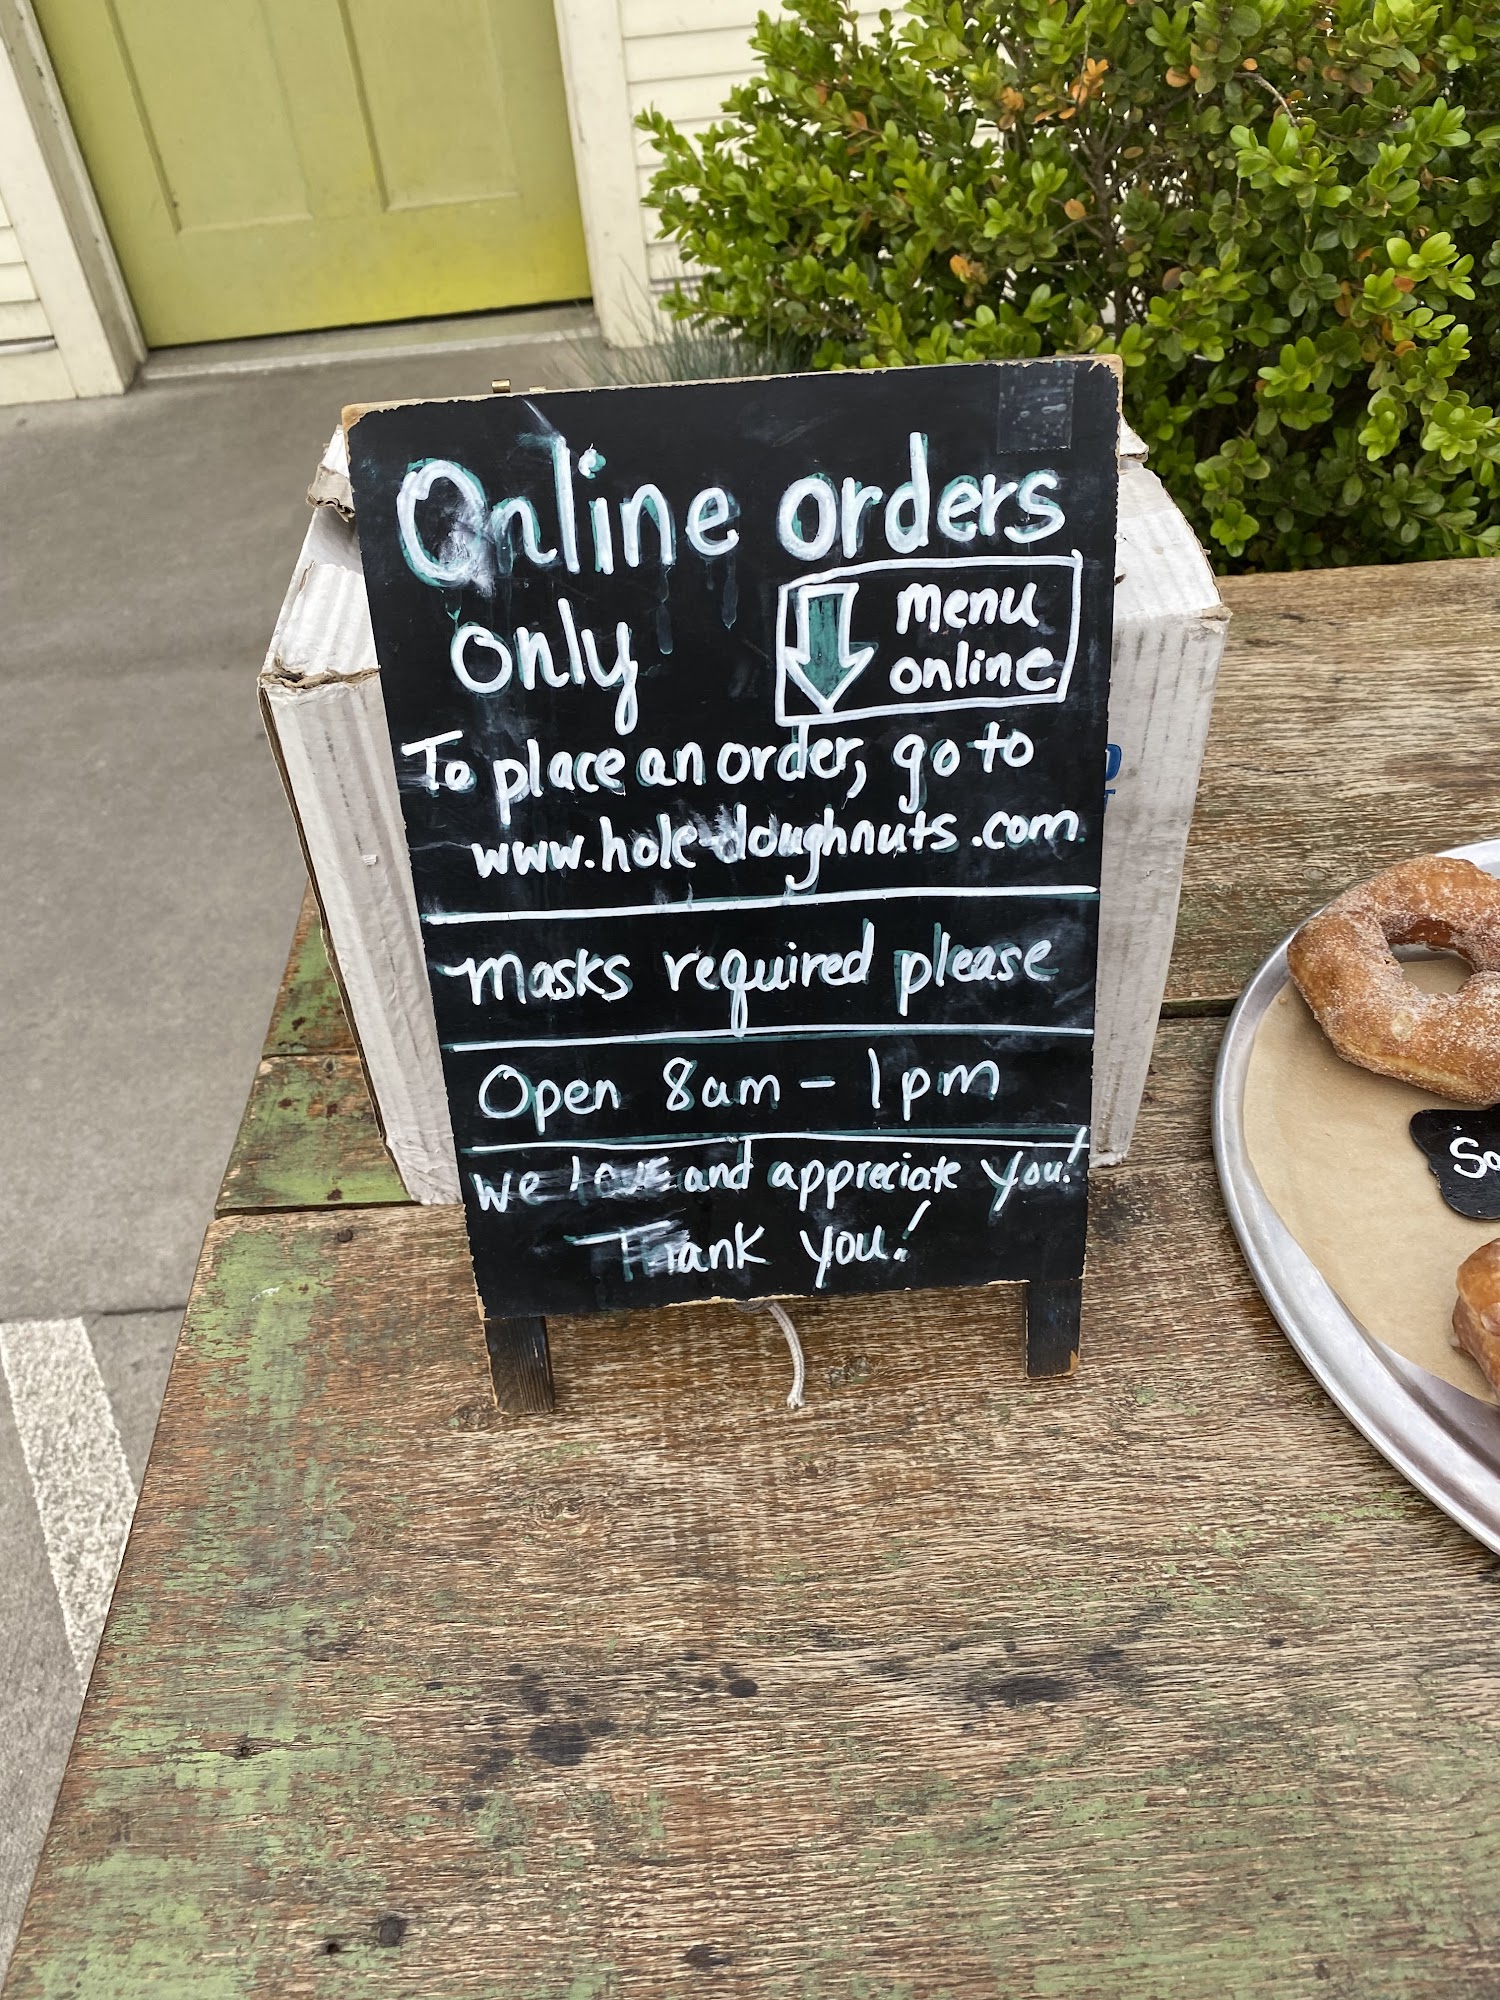 Online orders
only
menu
online
To place an order, go to
www.hole-doughnuts.com
Masks required please
Open 8am – 1pm
we love and appreciate you!
Thank you!